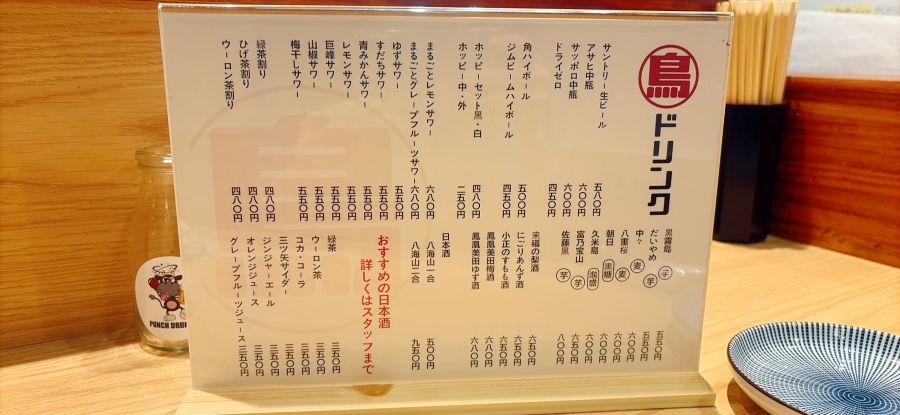 鳥
ドリンク
サントリー生ビール 五八〇円
アサヒ中瓶 六〇〇円
サッポロ中瓶 六〇〇円
ドライゼロ 四五〇円
角ハイボール 五〇〇円
ジムビームハイボール 四五〇円
ホッピーセット黒・白 四八〇円
ホッピー中・外 二五〇円
まるごとレモンサワー 六八〇円
まるごとグレープフルーツサワー 六八〇円
ゆずサワー 五五〇円
すだちサワー 五五〇円
青みかんサワー 五五〇円
レモンサワー 五五〇円
巨峰サワー 五五〇円
山椒サワー 五五〇円
梅干しサワー 五五〇円
緑茶割り 四八〇円
ひげ茶割り 四八〇円
ウーロン茶割り 四八〇円
黒霧島 芋 五五〇円
だいやめ 芋 五五〇円
中々 麦 六〇〇円
八重桜 麦 六〇〇円
朝日 黒糖 六〇〇円
久米島 泡盛 六〇〇円
富乃宝山 芋 六五〇円
佐藤黒 芋 八〇〇円
来福の梨酒 六五〇円
にごりあんず酒 六五〇円
小正のすもも酒 六五〇円
鳳凰美田梅酒 六八〇円
鳳凰美田ゆず酒 六八〇円
日本酒
八海山一合 五〇〇円
八海山二合 九五〇円
おすすめの日本酒
詳しくはスタッフまで
緑茶 三五〇円
ウーロン茶 三五〇円
コカ・コーラ 三五〇円
三ツ矢サイダー 三五〇円
ジンジャーエール 三五〇円
オレンジジュース 三五〇円
グレープフルーツジュース 三五〇円
PUNCH DRU